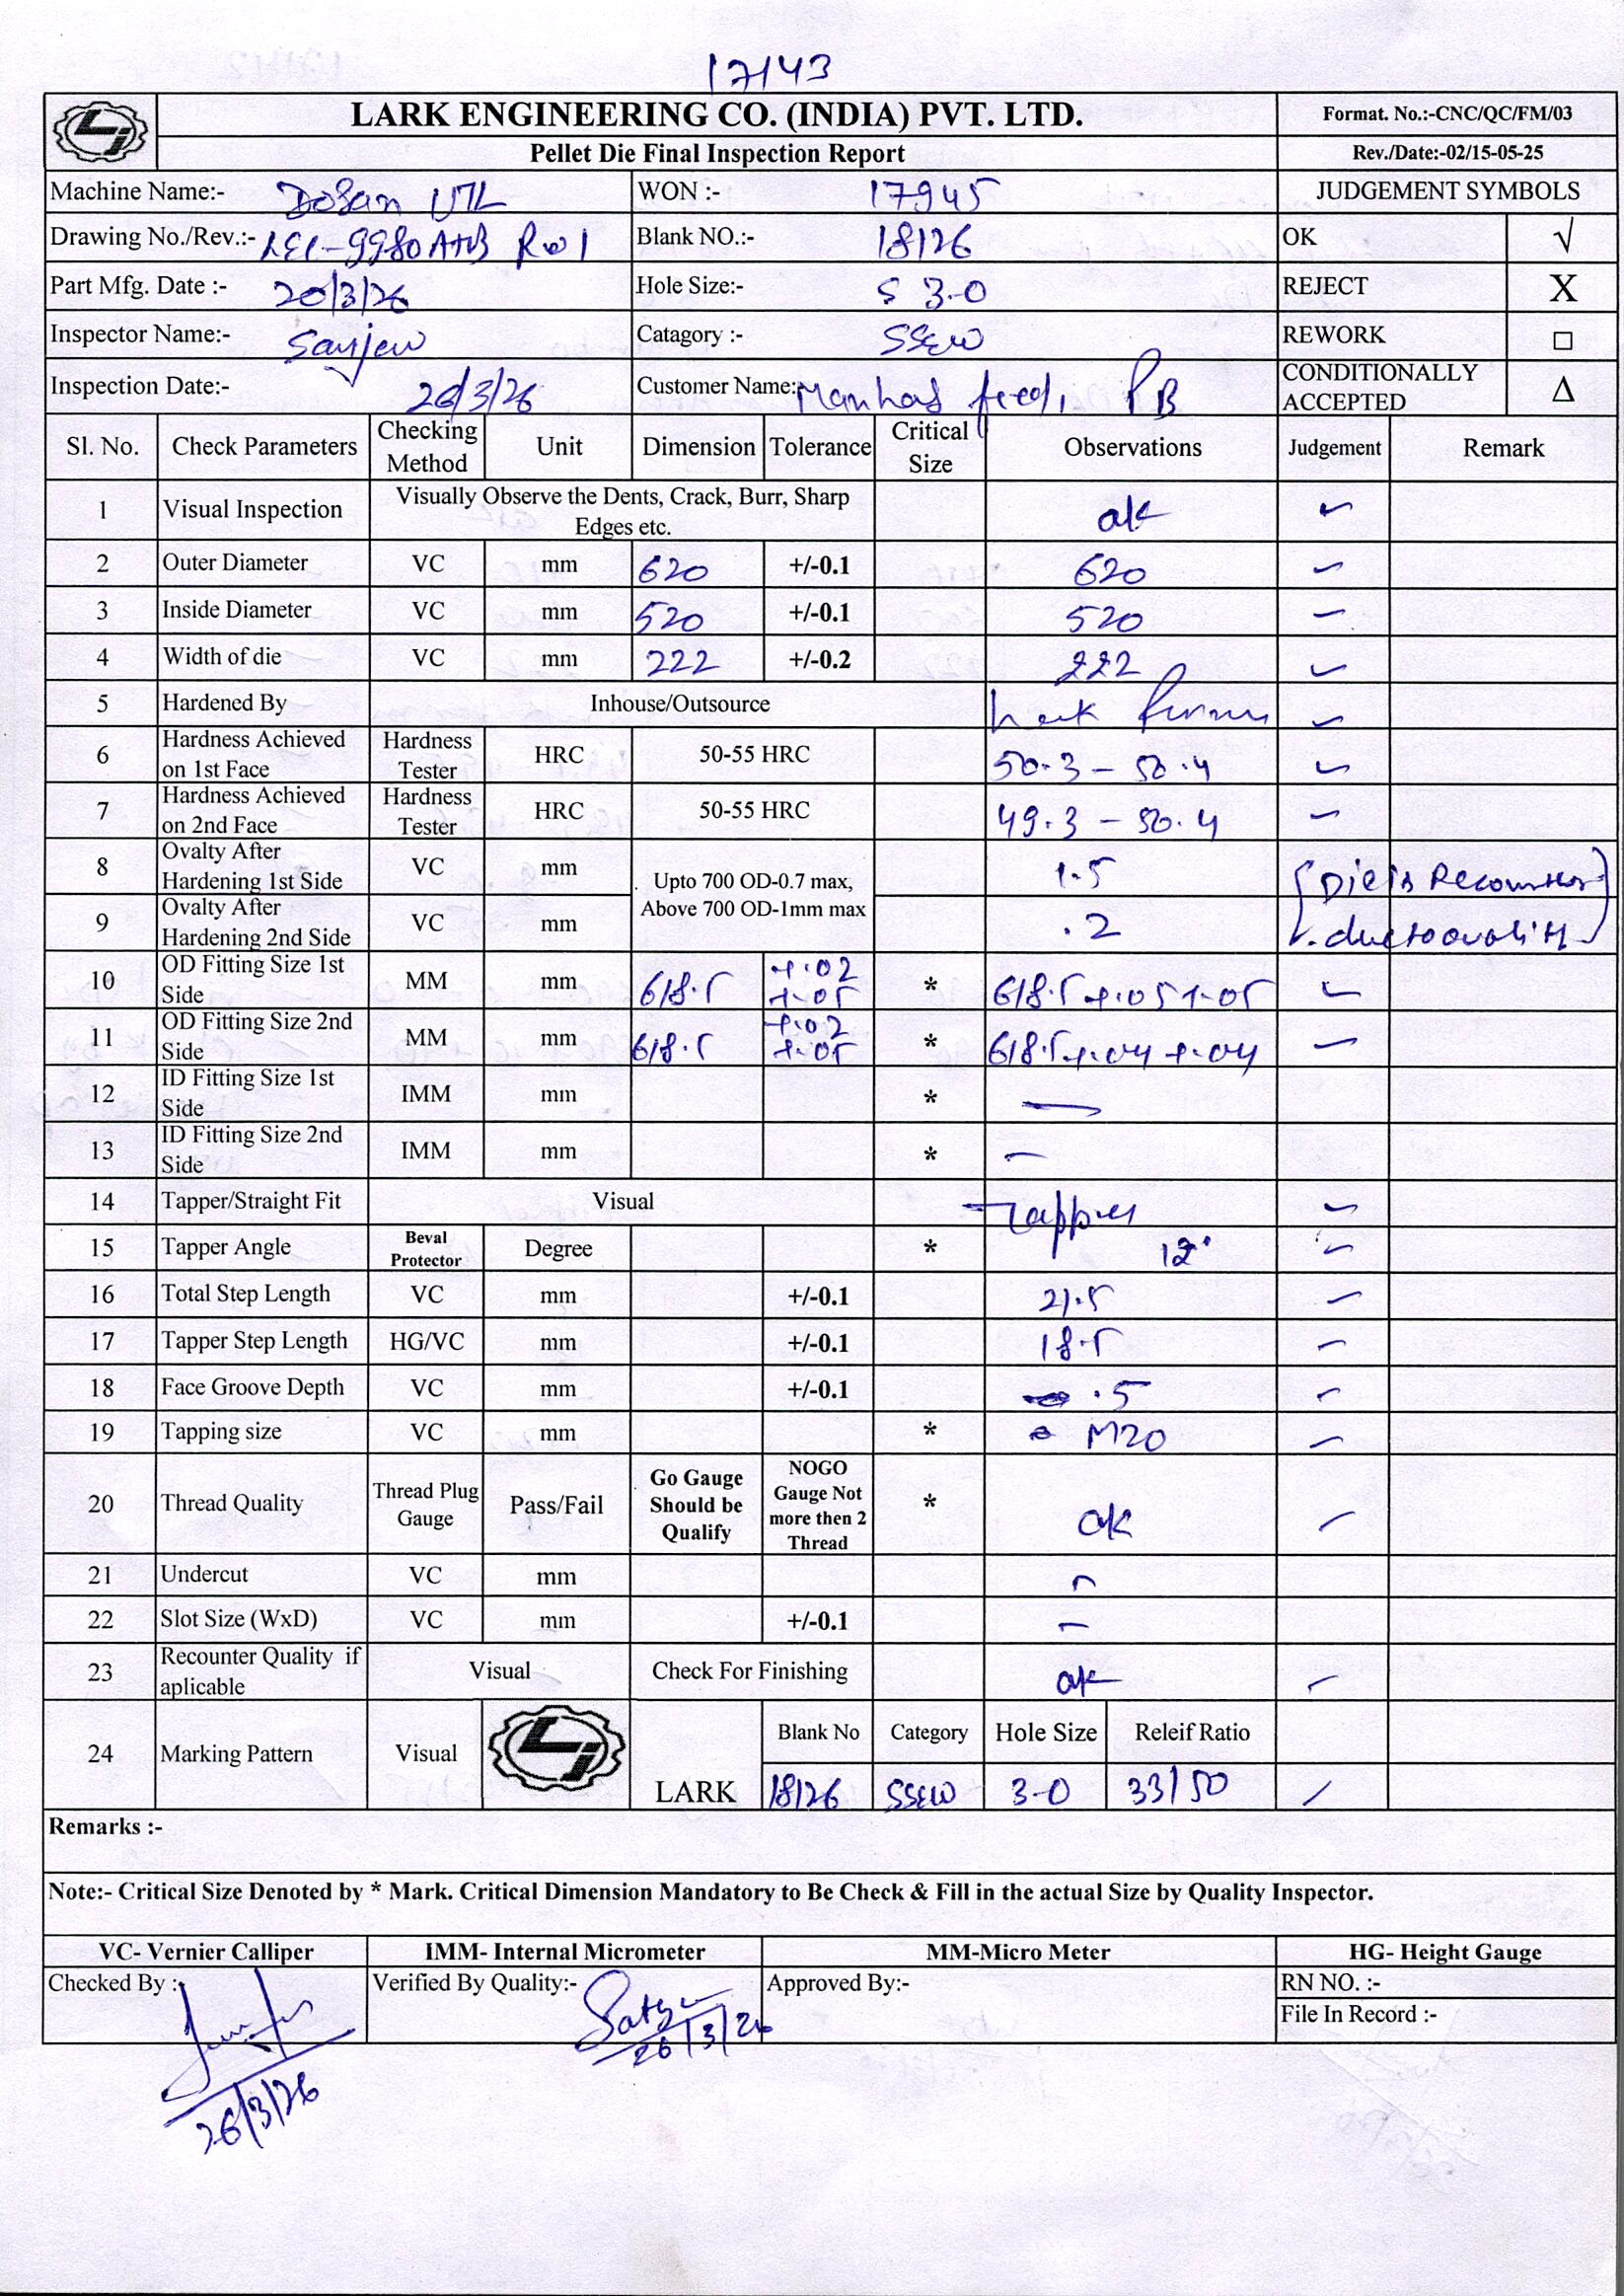 17143
LARK ENGINEERING CO. (INDIA) PVT. LTD.
Format. No.:-CNC/QC/FM/03
Pellet Die Final Inspection Report
Rev./Date:-02/15-05-25
Machine Name:- Dosan VTL WON :- 17945 JUDGEMENT SYMBOLS
Drawing No./Rev.:- LEC-9980 A+B R01 Blank NO.:- 18126 OK √
Part Mfg. Date :- 20/3/26 Hole Size:- S 3.0 REJECT X
Inspector Name:- Sanjeev Catagory :- SSEW REWORK □
Inspection Date:- 26/3/26 Customer Name: Manhas feed, PB CONDITIONALLY ACCEPTED Δ
Sl. No. Check Parameters Checking Method Unit Dimension Tolerance Critical Size Observations Judgement Remark
1 Visual Inspection Visually Observe the Dents, Crack, Burr, Sharp Edges etc. ok ✓
2 Outer Diameter VC mm 620 +/-0.1 620 ✓
3 Inside Diameter VC mm 520 +/-0.1 520 ✓
4 Width of die VC mm 222 +/-0.2 222 ✓
5 Hardened By Inhouse/Outsource ✓
6 Hardness Achieved on 1st Face Hardness Tester HRC 50-55 HRC 50.3 - 50.4 ✓
7 Hardness Achieved on 2nd Face Hardness Tester HRC 50-55 HRC 49.3 - 50.4 ✓
8 Ovalty After Hardening 1st Side VC mm Upto 700 OD-0.7 max, Above 700 OD-1mm max 1.5 Die is Recounter
9 Ovalty After Hardening 2nd Side VC mm .2 due to ovality
10 OD Fitting Size 1st Side MM mm 618.5 +.02 +.05 * 618.5 +.05 +.05 ✓
11 OD Fitting Size 2nd Side MM mm 618.5 +.02 +.05 * 618.5 +.04 +.04 ✓
12 ID Fitting Size 1st Side IMM mm * —
13 ID Fitting Size 2nd Side IMM mm * —
14 Tapper/Straight Fit Visual Tapper ✓
15 Tapper Angle Beval Protector Degree * 12° ✓
16 Total Step Length VC mm +/-0.1 21.5 ✓
17 Tapper Step Length HG/VC mm +/-0.1 18.5 ✓
18 Face Groove Depth VC mm +/-0.1 .5 ✓
19 Tapping size VC mm * M20 ✓
20 Thread Quality Thread Plug Gauge Pass/Fail Go Gauge Should be Qualify NOGO Gauge Not more then 2 Thread * ok ✓
21 Undercut VC mm —
22 Slot Size (WxD) VC mm +/-0.1 —
23 Recounter Quality if aplicable Visual Check For Finishing ok ✓
24 Marking Pattern Visual LARK Blank No Category Hole Size Releif Ratio
18126 SSEW 3.0 33/50 ✓
Remarks :-
Note:- Critical Size Denoted by * Mark. Critical Dimension Mandatory to Be Check & Fill in the actual Size by Quality Inspector.
VC- Vernier Calliper IMM- Internal Micrometer MM-Micro Meter HG- Height Gauge
Checked By : Verified By Quality:- Approved By:- RN NO. :-
File In Record :-
26/3/26
26/3/26